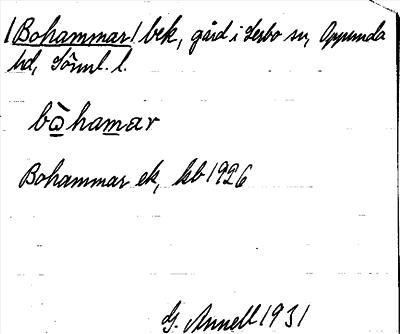 /Bohammar/ bek, gård i Lerbo sn, Oppunda
hd, Sörml. l.
bòhamar
Bohammar ek, kb 1926
G. Annell 1931